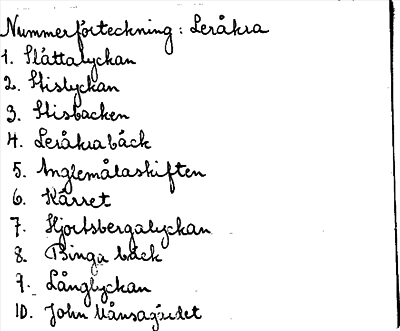 Nummerförteckning: Leråkra
1. Slättalyckan
2. Stislyckan
3. Stisbacken
4. Leråkrabäck
5. Änglemålaskiften
6. Kärret
7. Hjortsbergalyckan
8. Binga bäck
9. Långlyckan
10. John Månsagärdet